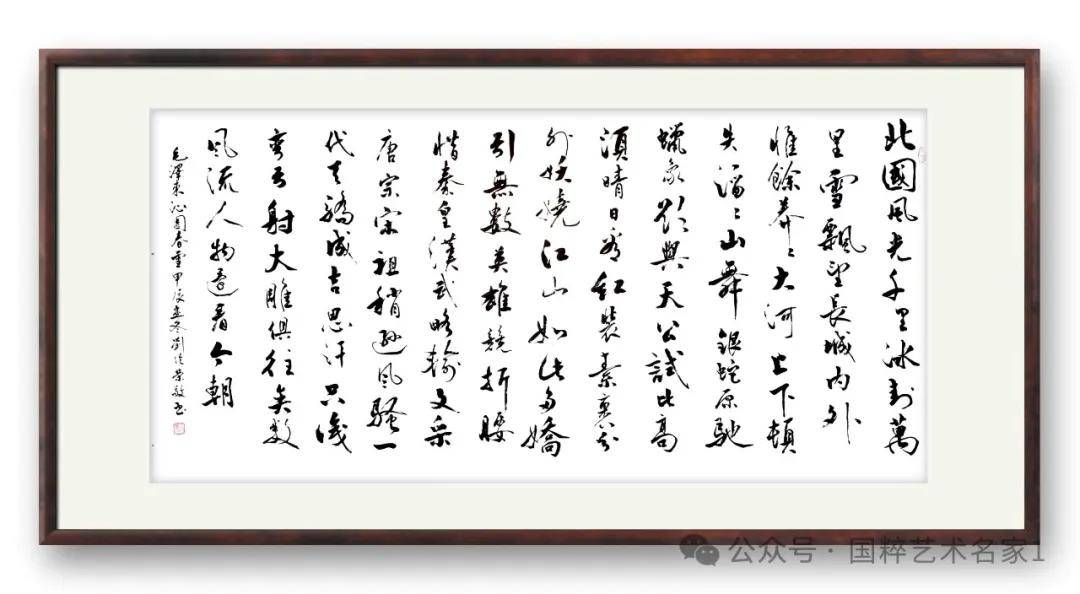 北國風光千里冰封萬
里雪飄望長城内外
惟餘莽〻大河上下頓
失滔〻山舞銀蛇原馳
蠟象欲與天公試比高
須晴日看紅裝素裹分
外妖嬈江山如此多嬌
引無數英雄競折腰
惜秦皇漢武略輸文采
唐宗宋祖稍遜風騷一
代天驕成吉思汗只識
彎弓射大雕俱往矣數
風流人物還看今朝
毛澤東沁園春雪甲辰冬劉榮敬書
公众号 · 国粹艺术名家1